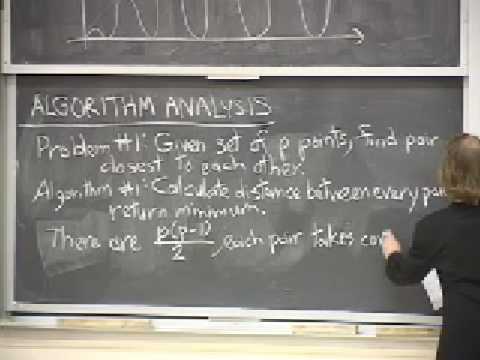 ALGORITHM ANALYSIS
Problem #1: Given set of p points, find pair
closest to each other.
Algorithm #1: Calculate distance between every pair
return minimum.
There are p(p-1)/2, each pair takes con